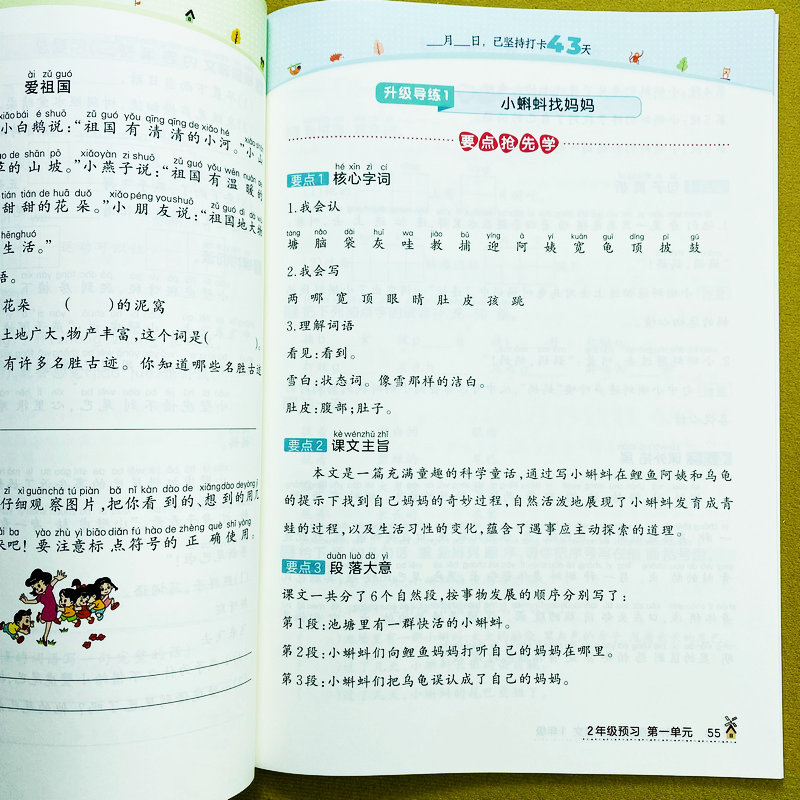 ài zǔ guó
爱祖国
小白鹅说：“祖国有清清的小河。”小山
的山坡。”小燕子说：“祖国有温暖的
甜甜的花朵。”小朋友说：“祖国地大物
生活。”
语。
花朵 （ ）的泥窝
土地广大，物产丰富，这个词是（ ）。
有许多名胜古迹。你知道哪些名胜古迹
zǐ xì guān chá tú piàn bǎ nǐ kàn dào de xiǎng dào de yòng jǐ
仔细观察图片，把你看到的、想到的用几
ba yào zhù yì biāo diǎn fú hào de zhèng què shǐ yòng
来吧！要注意标点符号的正确使用。
___月___日，已坚持打卡43天
升级导练1 小蝌蚪找妈妈
要点抢先学
hé xīn zì cí
要点1 核心字词
1.我会认
táng nǎo dài huī wa jiāo bǔ yíng ā yí kuān guī dǐng pī gǔ
塘 脑 袋 灰 哇 教 捕 迎 阿 姨 宽 龟 顶 披 鼓
2.我会写
两 哪 宽 顶 眼 睛 肚 皮 孩 跳
3.理解词语
看见：看到。
雪白：状态词。像雪那样的洁白。
肚皮：腹部；肚子。
kè wén zhǔ zhǐ
要点2 课文主旨
本文是一篇充满童趣的科学童话，通过写小蝌蚪在鲤鱼阿姨和乌龟
的提示下找到自己妈妈的奇妙过程，自然活泼地展现了小蝌蚪发育成青
蛙的过程，以及生活习性的变化，蕴含了遇事应主动探索的道理。
duàn luò dà yì
要点3 段落大意
课文一共分了6个自然段，按事物发展的顺序分别写了：
第1段：池塘里有一群快活的小蝌蚪。
第2段：小蝌蚪们向鲤鱼妈妈打听自己的妈妈在哪里。
第3段：小蝌蚪们把乌龟误认成了自己的妈妈。
2年级预习 第一单元 55